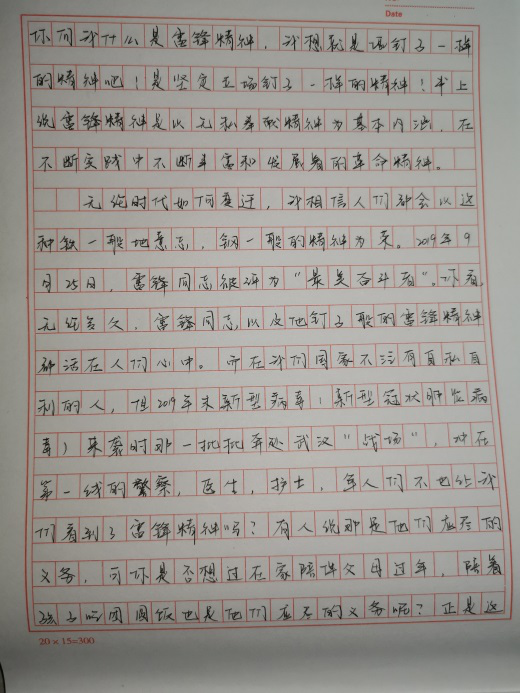 Date
你问我什么是雷锋精神，我想就是颗钉子一样
的精神吧！是坚定立场钉子一样的精神！书上
说雷锋精神是以无私奉献精神为基本内涵，在
不断实践中不断丰富和发展着的革命精神。
无论时代如何变迁，我相信人们都会以这
种铁一般地意志，钢一般的精神为荣。2019年9
月25日，雷锋同志被评为“最美奋斗者”。你看，
无论多久，雷锋同志以及他钉子般的雷锋精神
都活在人们心中。而在我们国家不泛有自私自
利的人，但2019年末新型病毒（新型冠状肺炎病
毒）来袭时那一批批奔赴武汉“战场”，冲在
第一线的警察，医生，护士，军人们不也给我
们看到了雷锋精神吗？有人说那是他们应尽的
义务，可你是否想过在家陪伴父母过年，陪着
孩子吃团圆饭也是他们应尽的义务呢？正是这
20×15=300